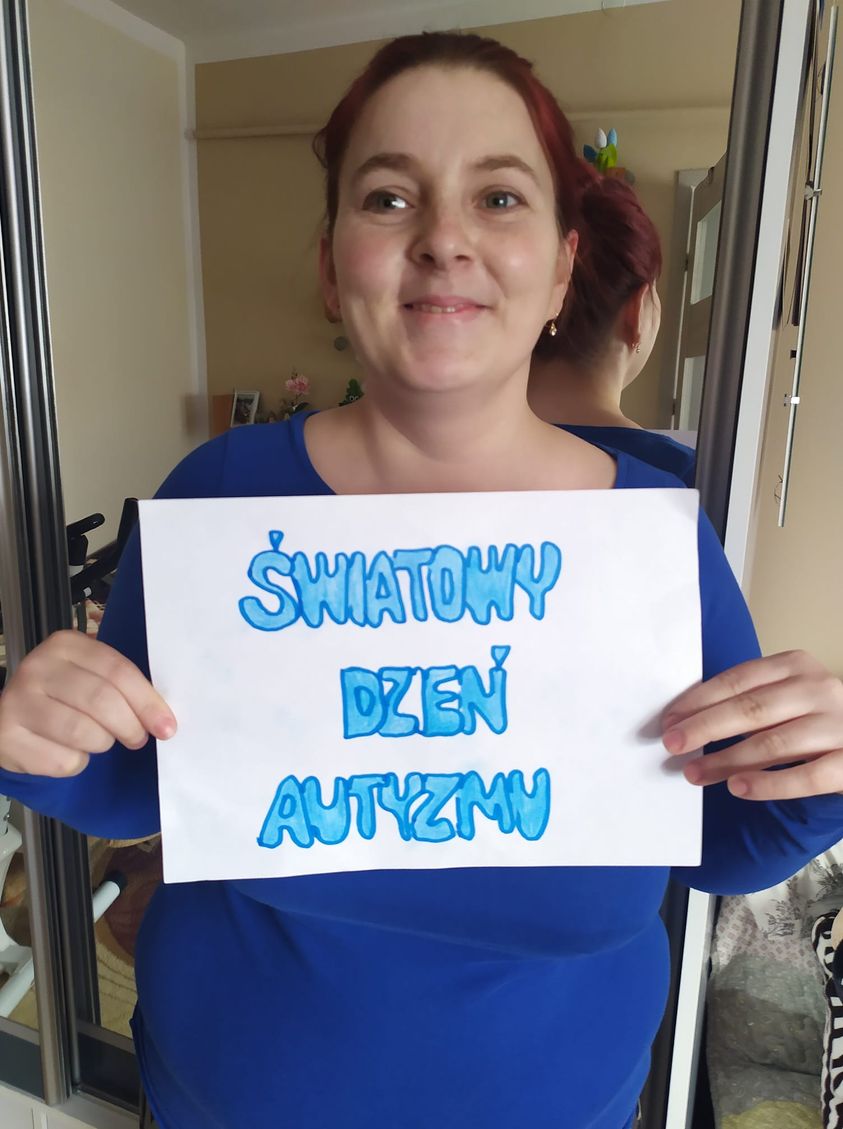 ŚWIATOWY
DZEŃ
AUTYZMU